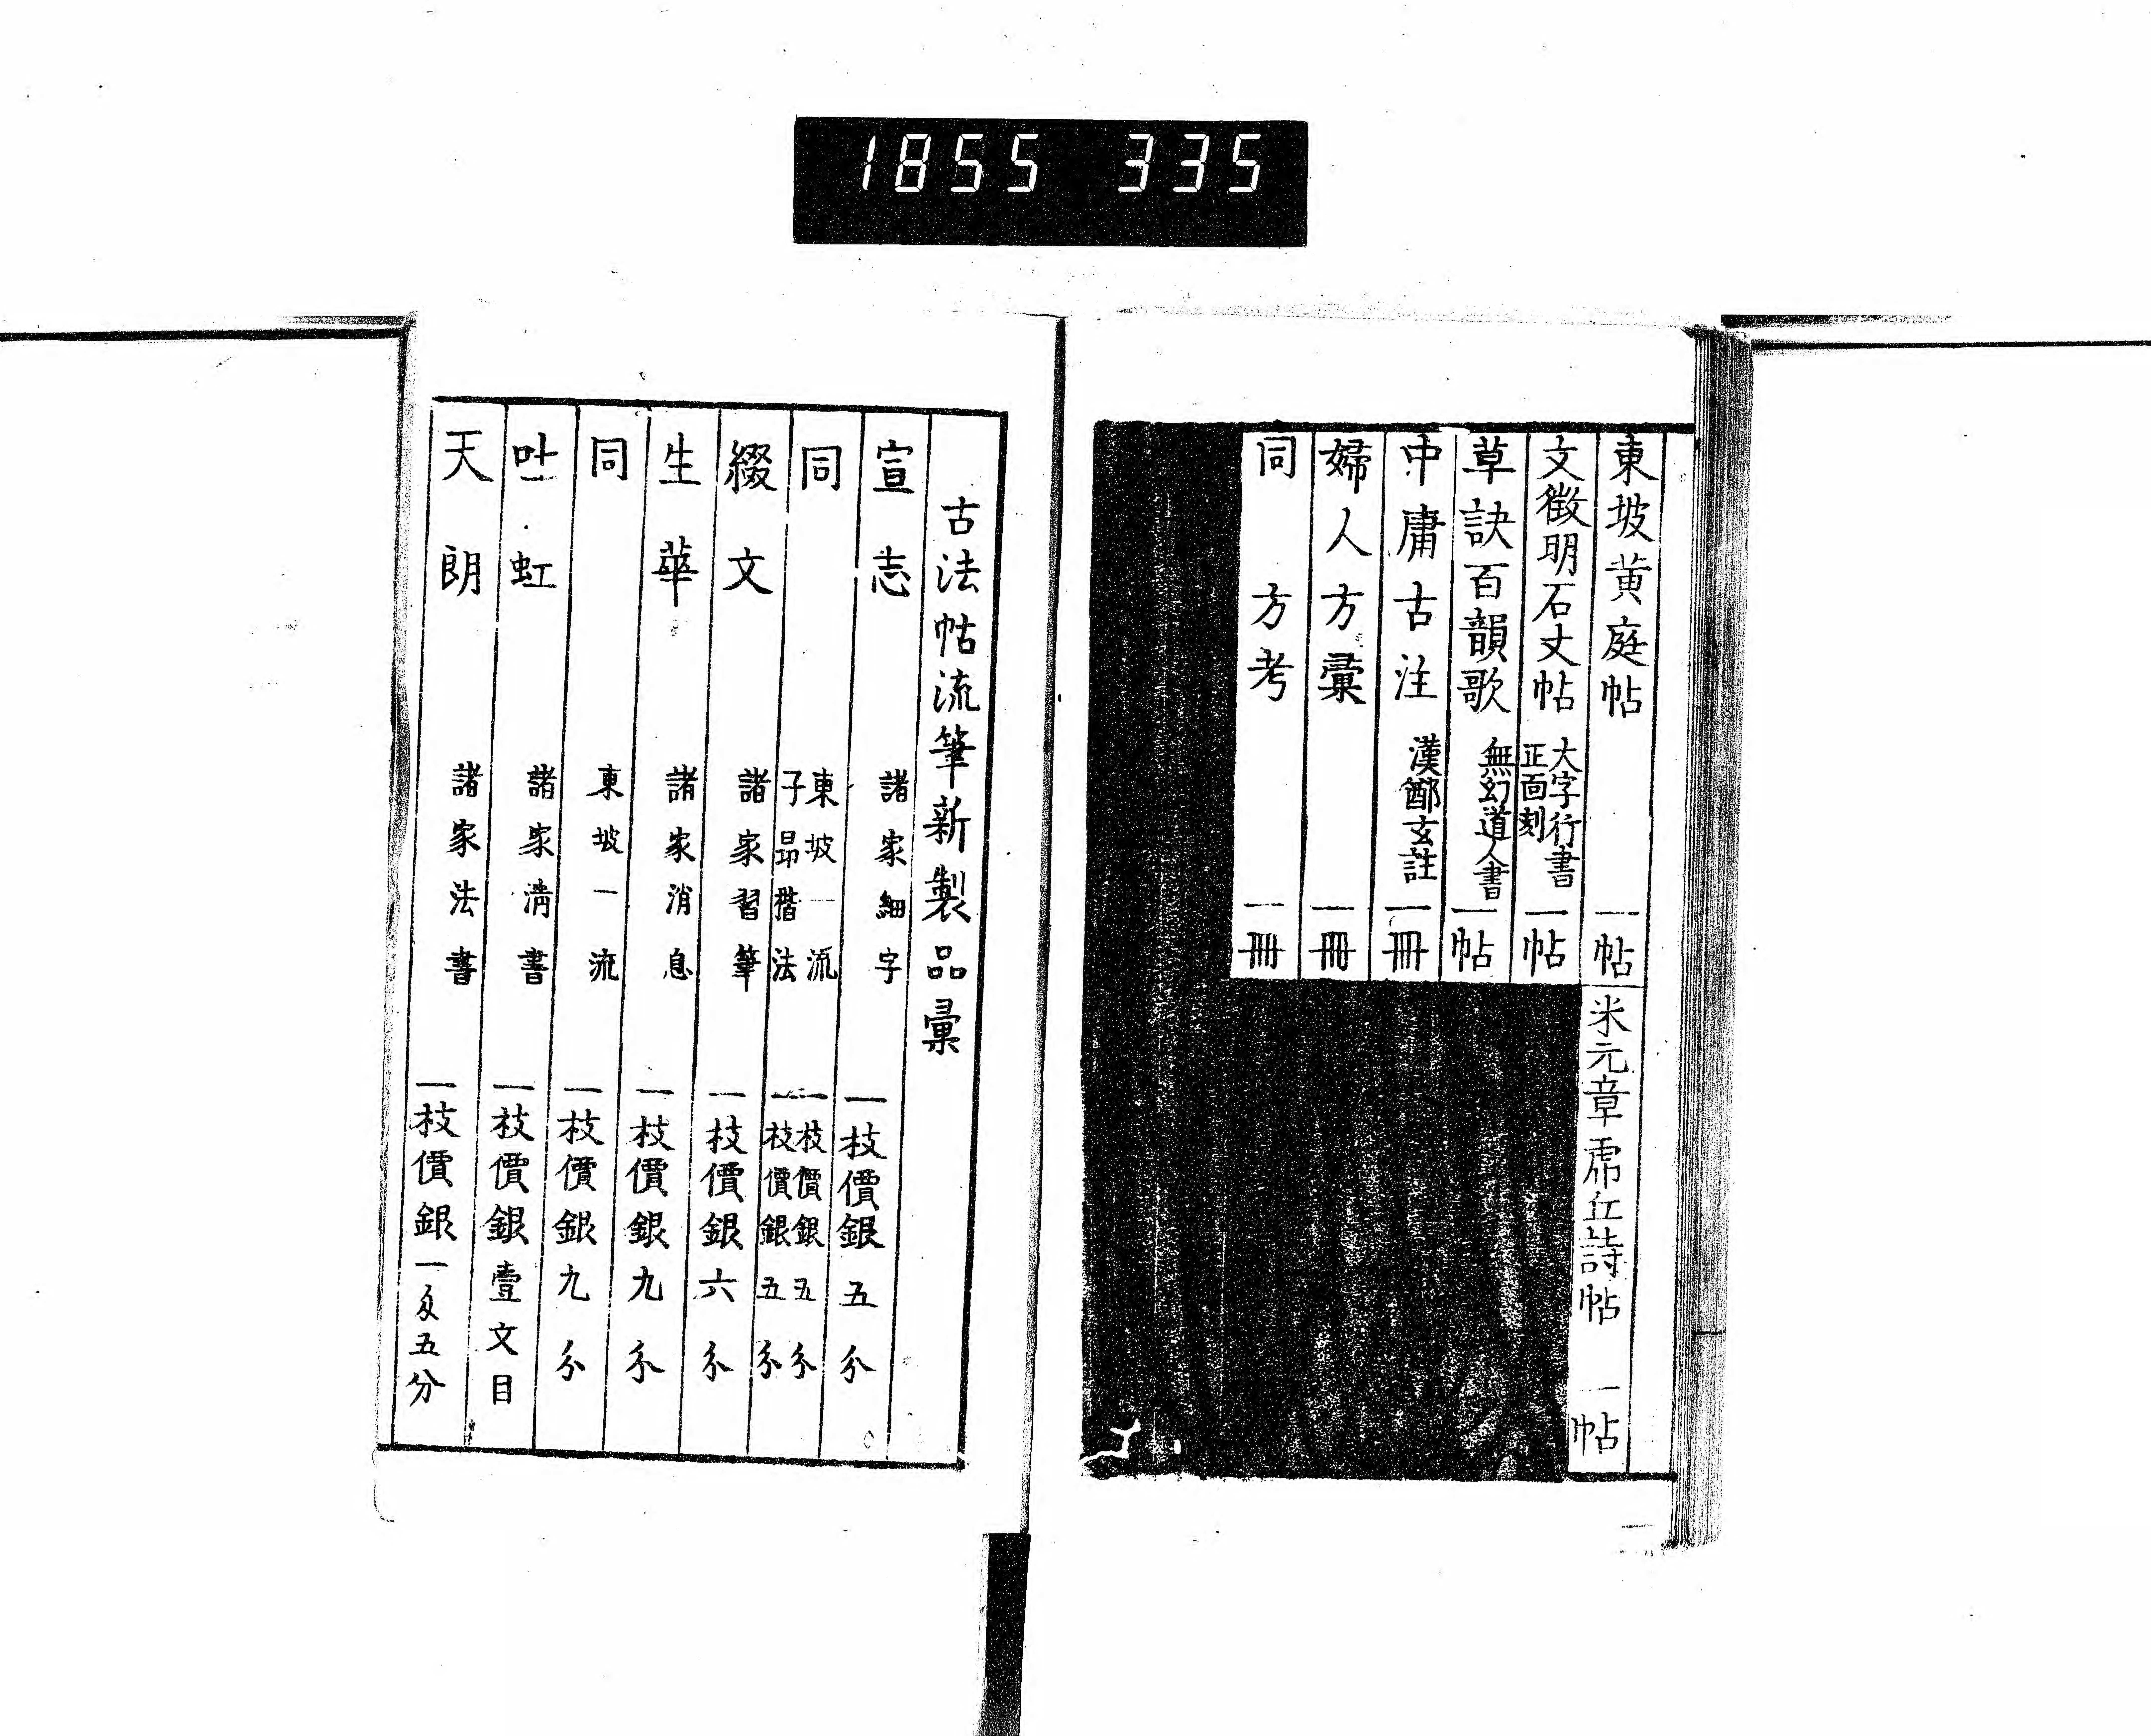 1855 335
東坡黄庭帖 一帖
米元章虎丘詩帖 一帖
文徴明石丈帖 大字行書 正面刻 一帖
草訣百韻歌 無幻道人書 一帖
中庸古注 漢鄭玄註 一冊
婦人方彙 一冊
同 方考 一冊
古法帖流筆新製品彙
宣志 諸家細字 一枝價銀五分
同 東坡一流 一枝價銀五分
子昂楷法 一枝價銀五分
綴文 諸家習筆 一枝價銀六分
生華 諸家消息 一枝價銀九分
同 東坡一流 一枝價銀九分
吐虹 諸家清書 一枝價銀壹文目
天朗 諸家法書 一枝價銀一匁五分